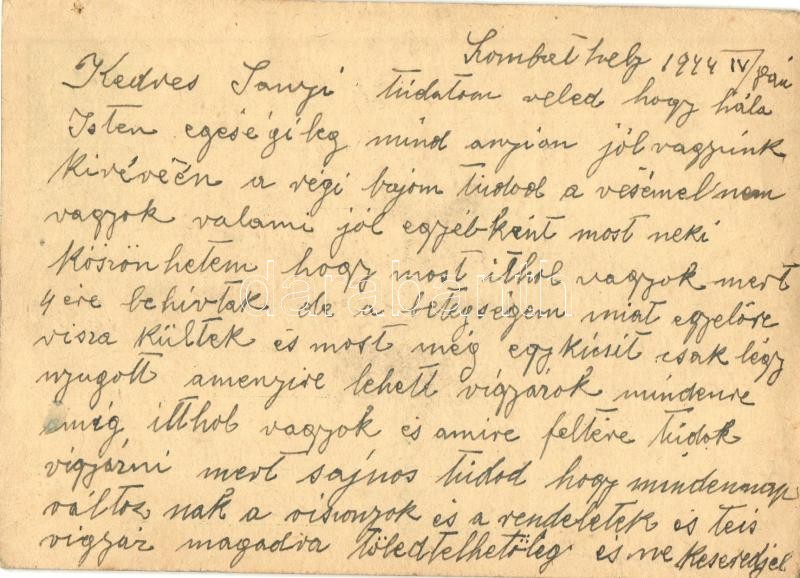 Szombathely 1944 IV/9én
Kedves Sanyi tudatom veled hogy hála
Isten egeségileg mind anyian jól vagyunk
kivévén a régi bajom tudod a vesémel nem
vagyok valami jól egyébként most neki
köszönhetem hogy most ithol vagyok mert
4ére behívtak de a betegségem miat egyelőre
visza kültek és most még egy kicsit csak légy
nyugott amenyire lehett vigyázok mindenre
amíg itthol vagyok és amire feltére tudok
vigyázni mert sajnos tudod hogy mindennap
változnak a viszonyok és a rendeletek és te is
vigyáz magadra tőled telhetőleg és ne keseredjel
darabanth